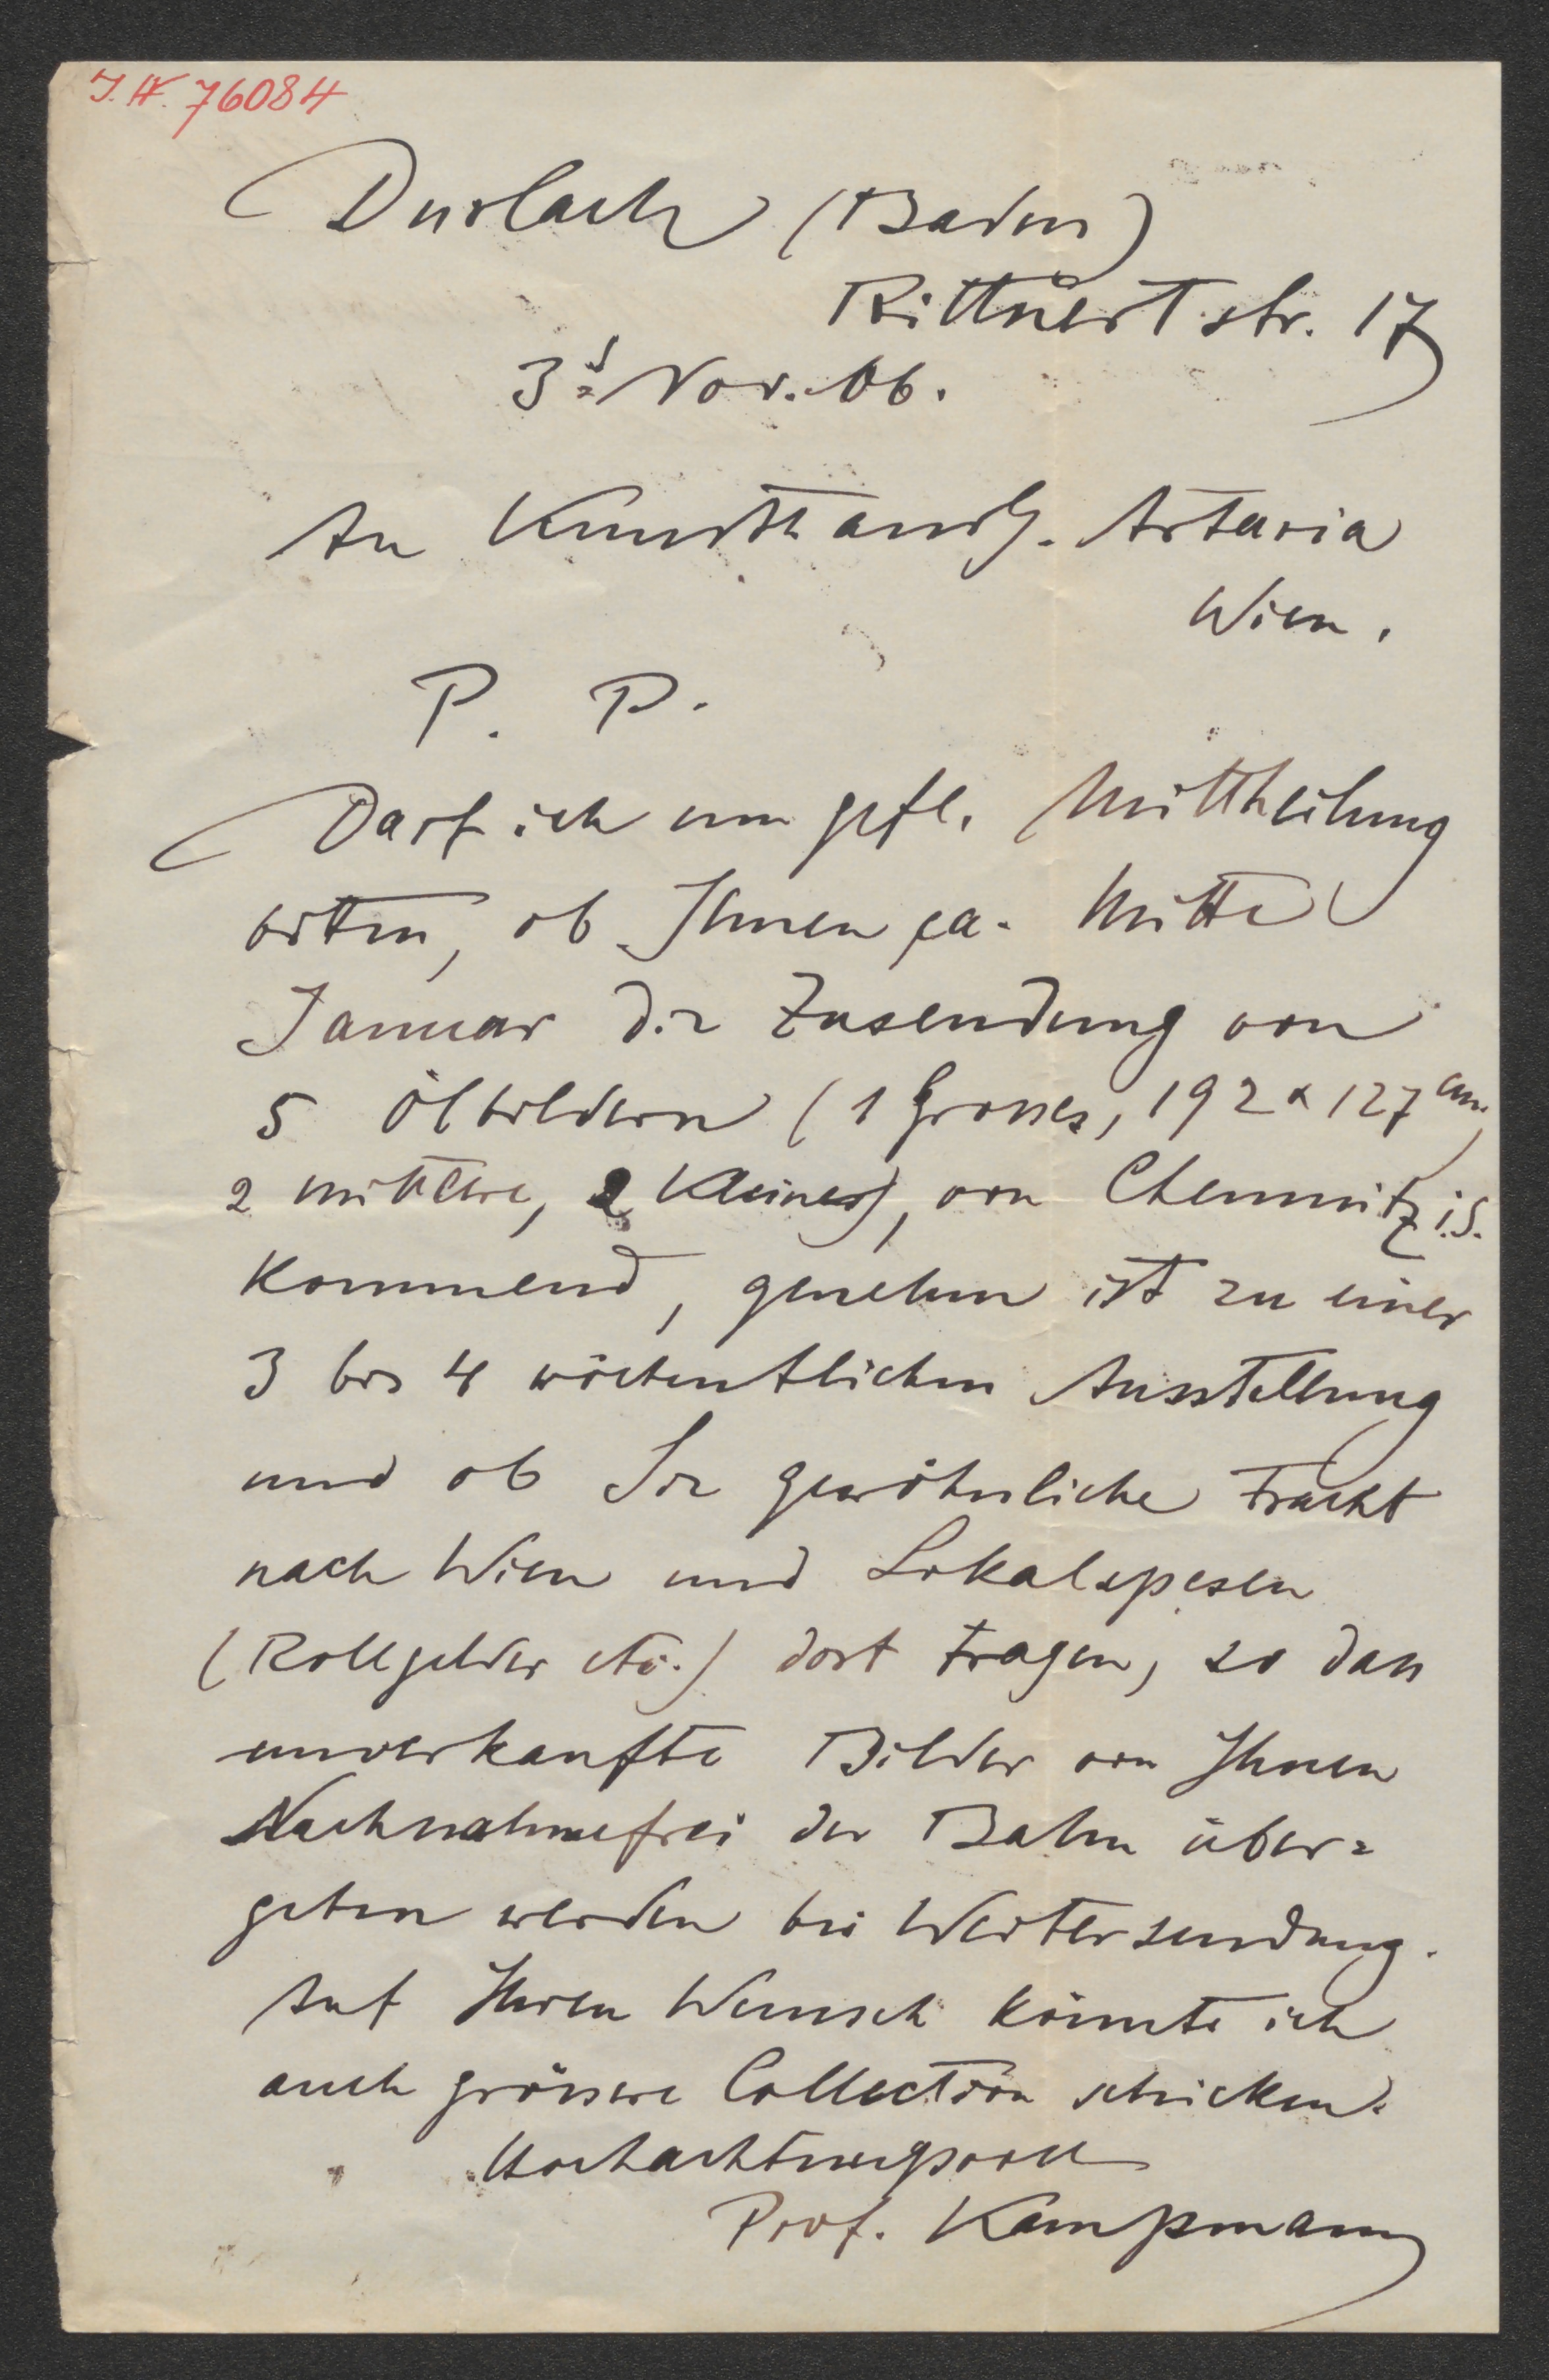 I.N. 76084
Durlach (Baden)
Rittnertstr. 17
3t Nov. 06.
An Kunsthandlg. Artaria
Wien.
P. P.
Darf ich um gefl. Mittheilung
bitten, ob Ihnen ca. Mitte
Januar die Zusendung von
5 Ölbildern (1 Grosses, 192 x 127 cm,
2 mittlere, 2 Kleines), von Chemnitz i.S.
kommend, genehm ist zu einer
3 bis 4 wöchentlichen Ausstellung
und ob Sie gewöhnliche Fracht
nach Wien und Lokalspesen
(Rollgelder etc.) dort tragen, so dass
unverkaufte Bilder von Ihnen
Nachnahmefrei der Bahn über=
geben werden bei Weitersendung.
Auf Ihren Wunsch könnte ich
auch grössere Collection schicken.
Hochachtungsvoll
Prof. Kampmann